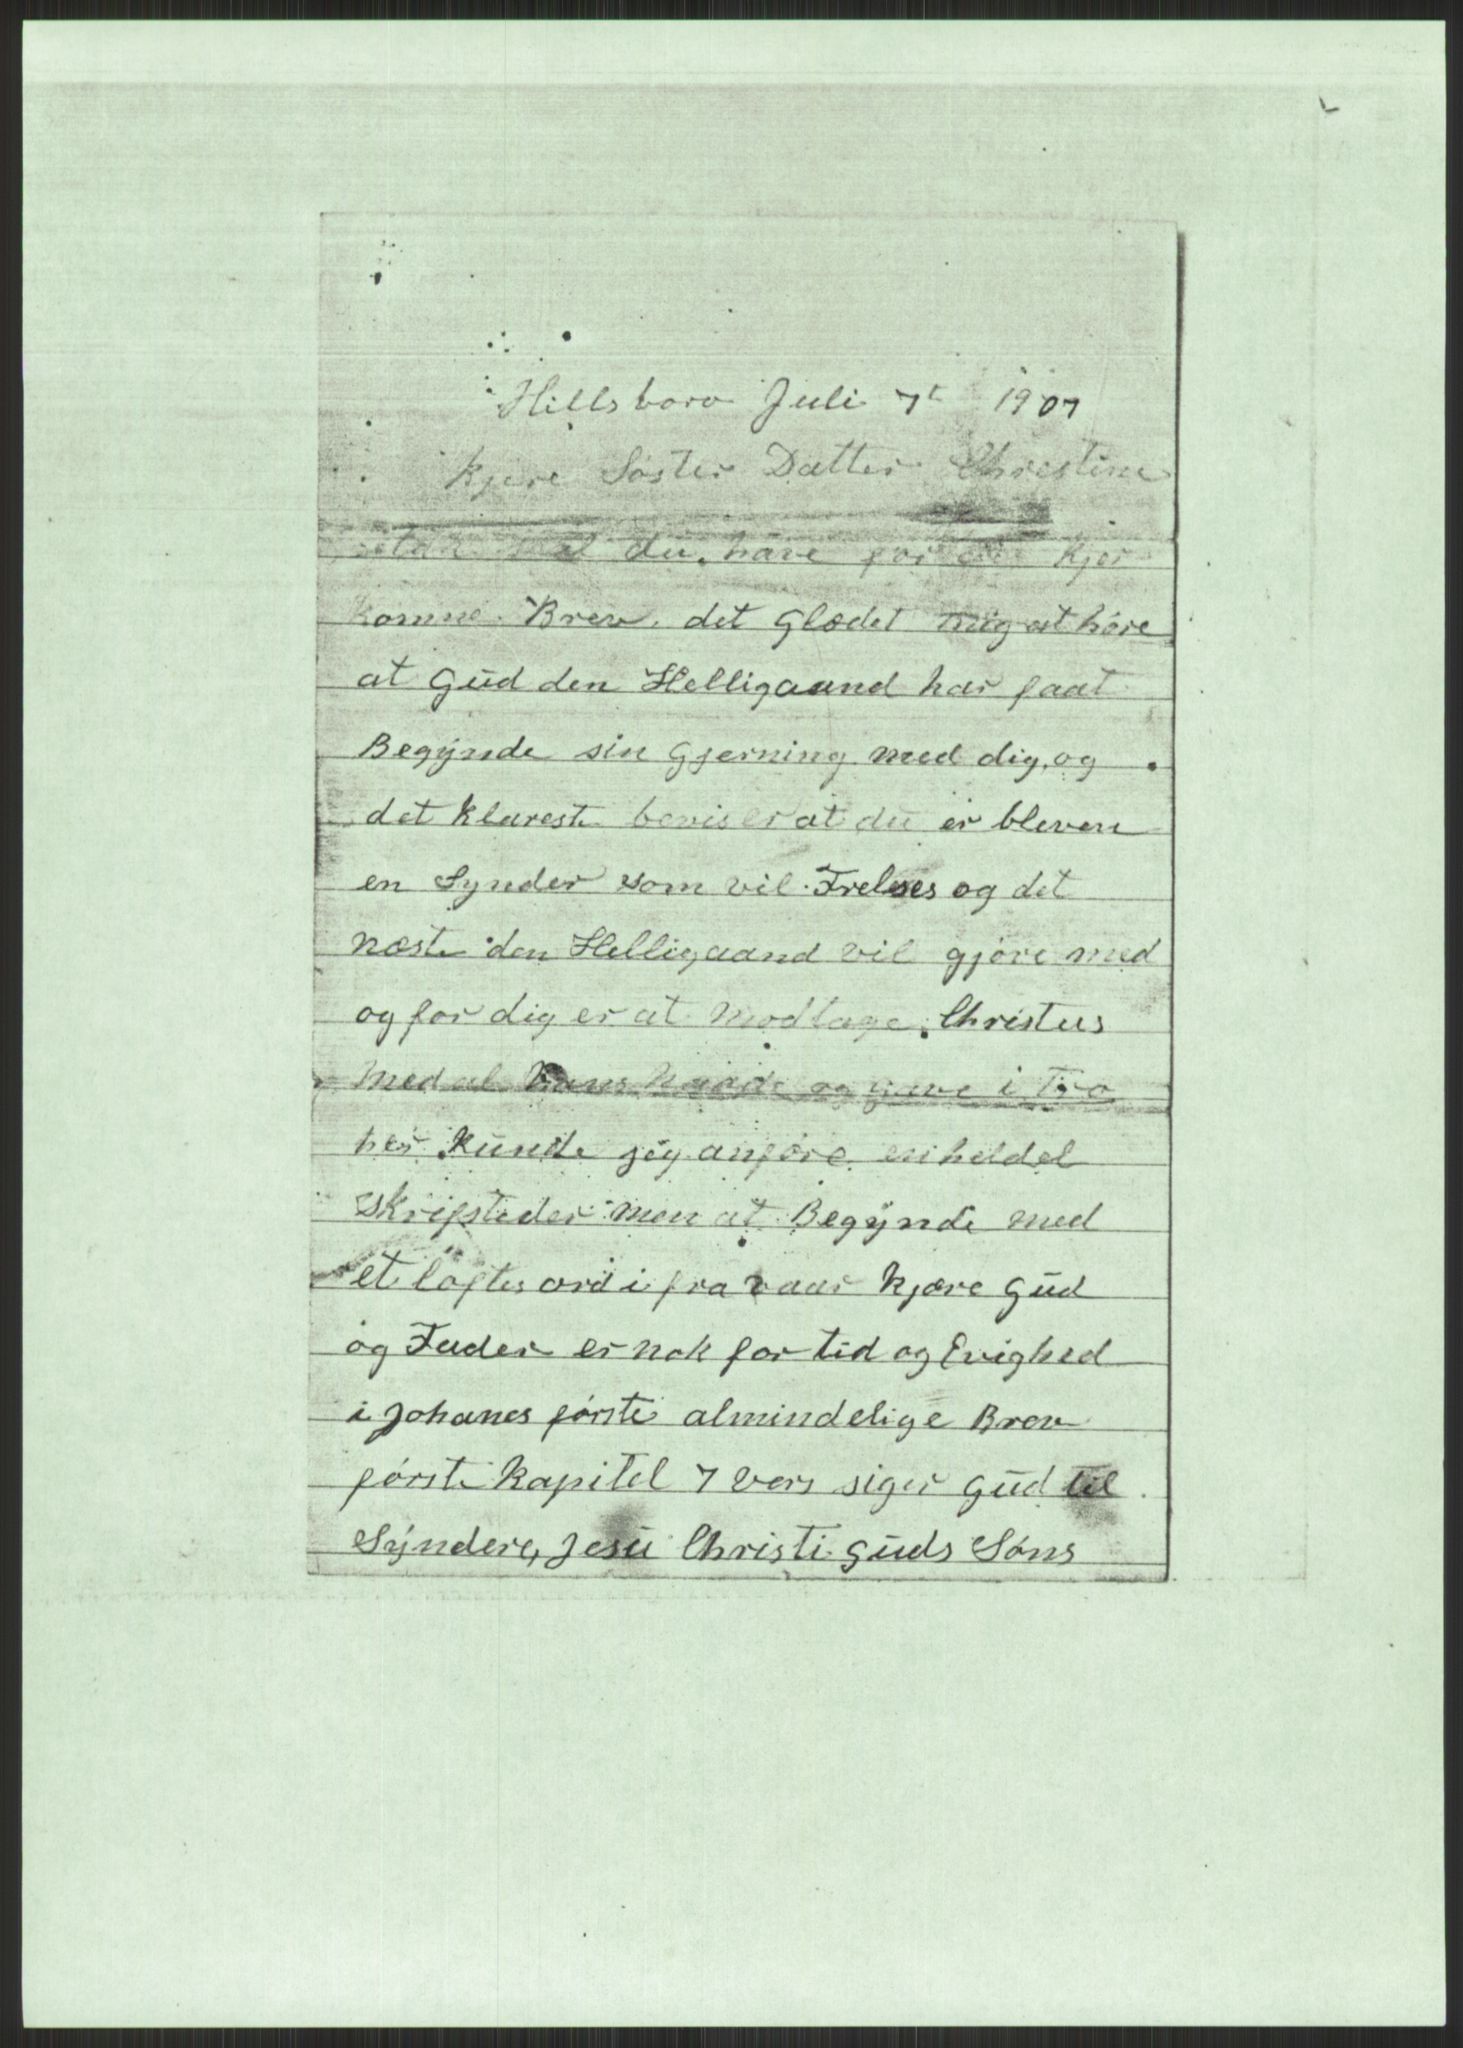 Hillsboro Juli 7t 1907
Kjære Søster Datter Christine
tak skal du have for kjer
komne Brev. det Glædet mig at høre
at Gud den Helligaand har faat
Begynde sin Gjerning med dig, og
det klareste bevis er at du er bleven
en Synder som vil Frelses og det
næste den Helligaand vil gjøre med
og for dig er at Modtage Christus
Med al hans Naade og gave i Tro
her kunde jeg anføre en heldel
Skrifsteder men at Begynde med
et løftes ord i fra vaar kjære Gud
og Fader er nok for tid og Evighed
i Johanes første almindelige Brev
første kapitel 7 vers siger Gud til
Syndere, Jesu Christi Guds Søns